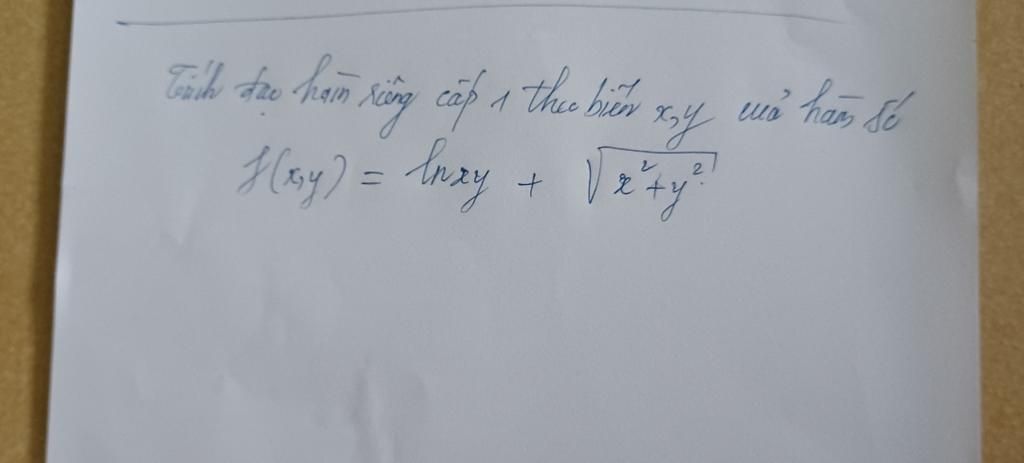 Tính đạo hàm riêng cấp 1 theo biến x,y của hàm số
f(x,y) = lnxy + √(x²+y²)